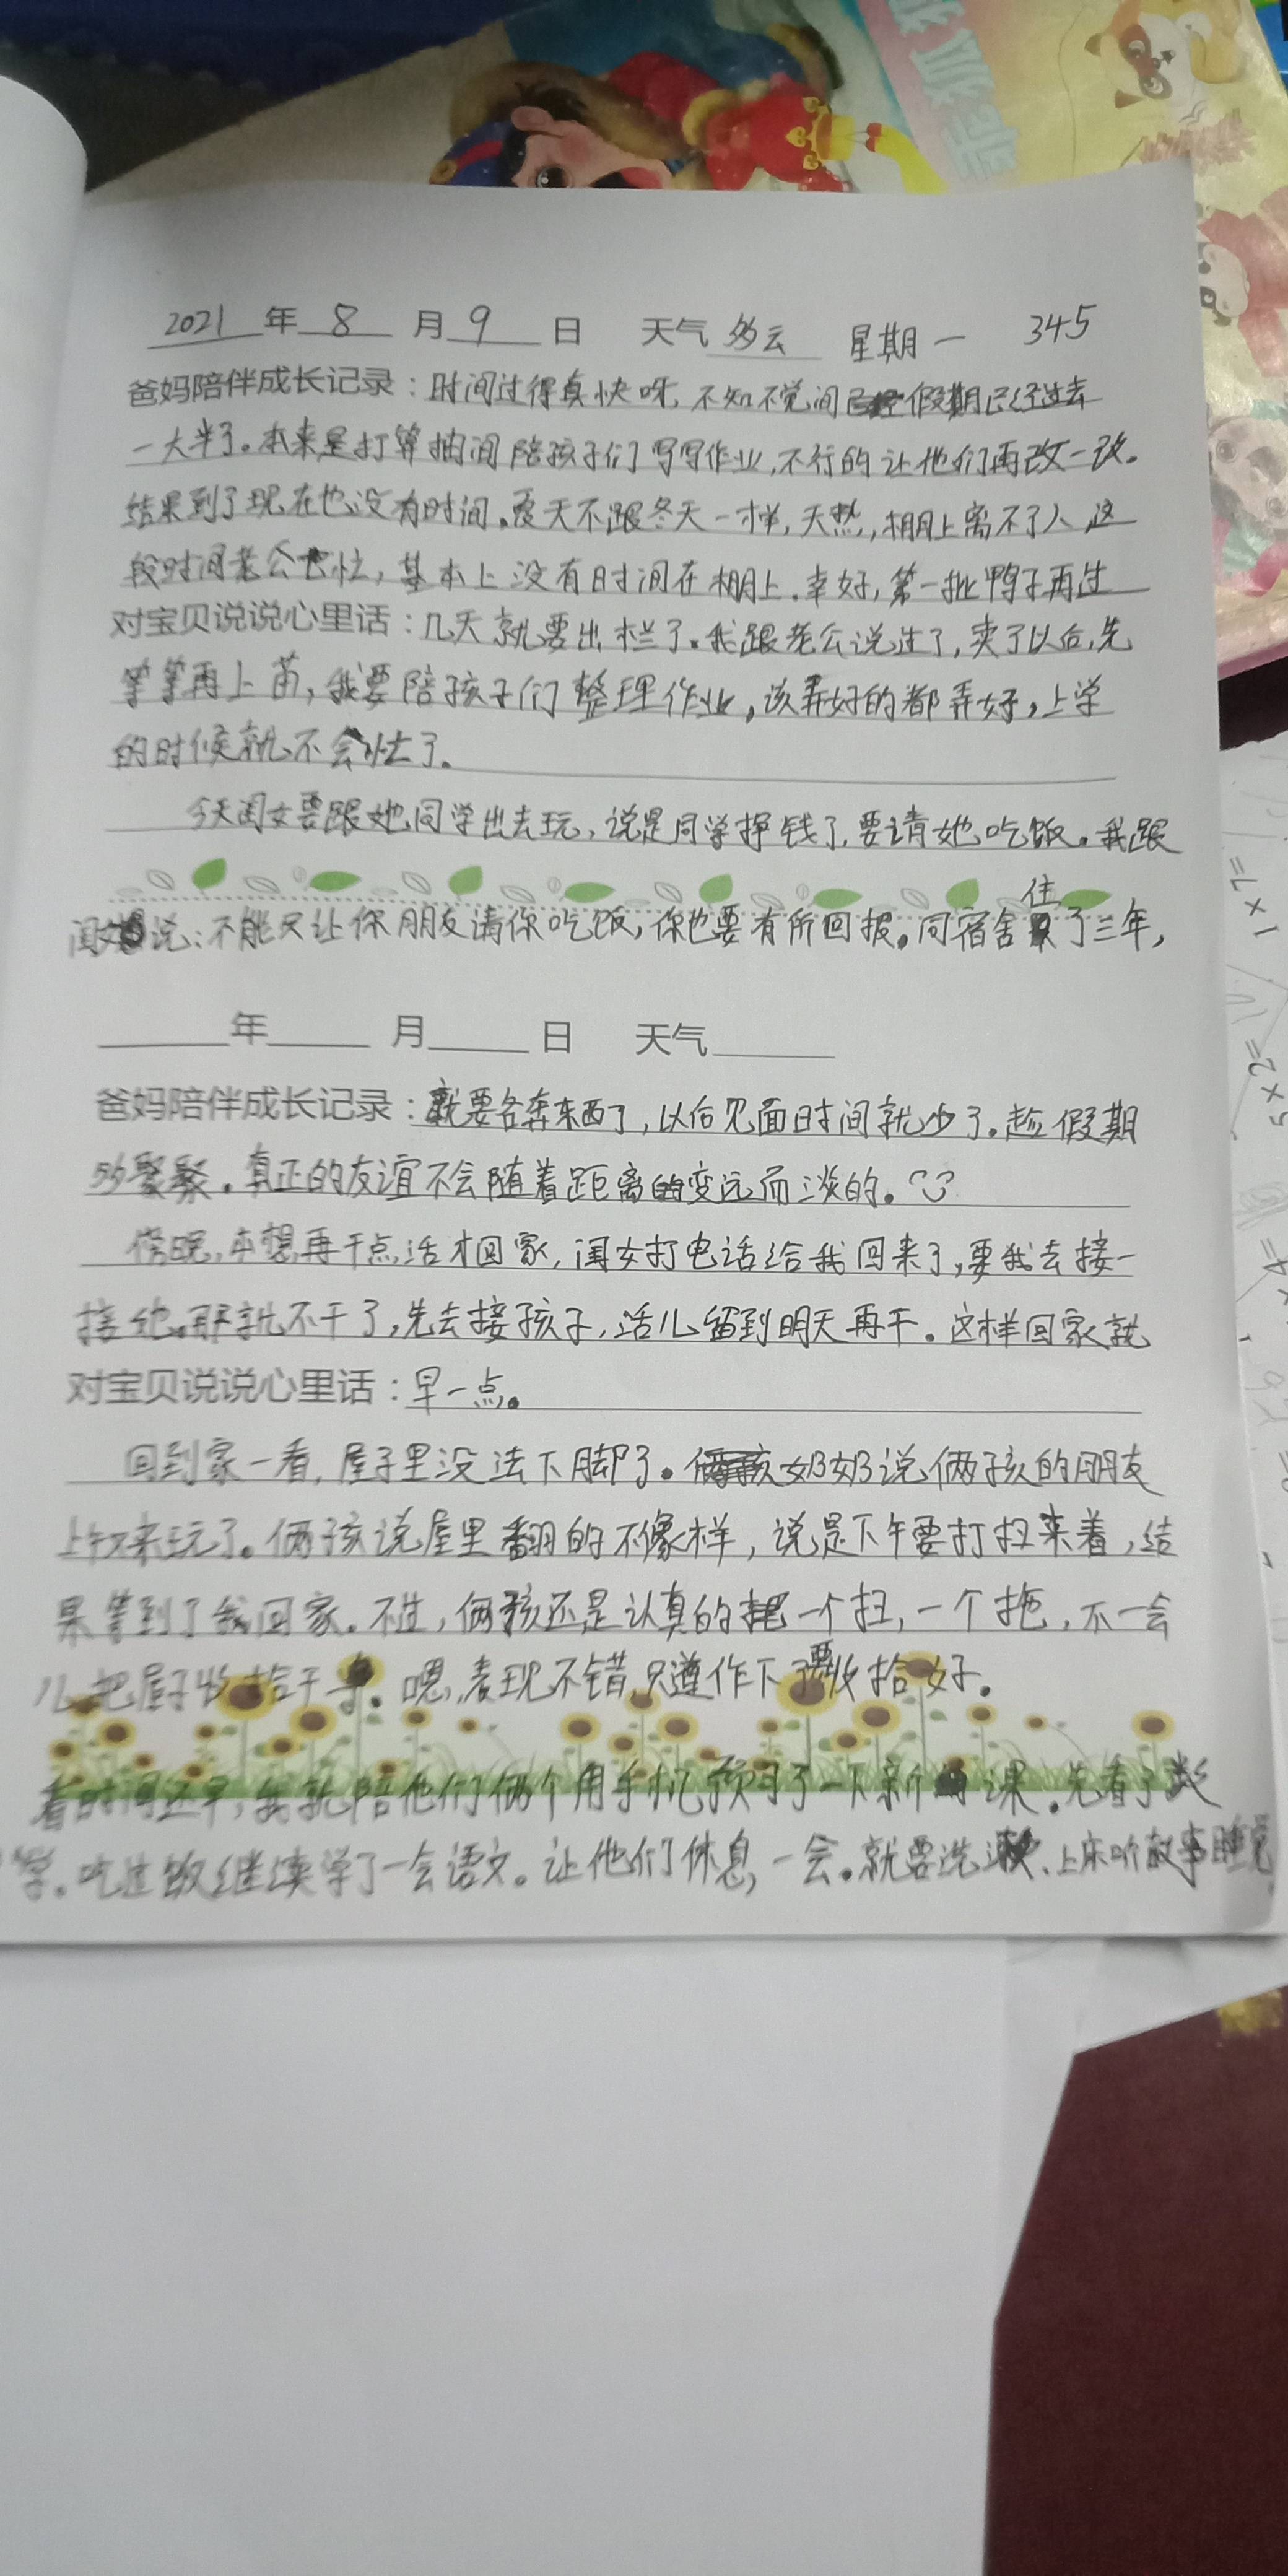 乖狐狸
2021年8月9日 天气多云 星期一 345
爸妈陪伴成长记录：时间过得真快呀，不知不觉间假期已经过去
一大半了。本来是打算抽间陪孩子们写写作业，不行的让他们再改一改。
结果到了现在也没有时间。夏天不跟冬天一样，天热，棚上离不了人，这
段时间老公忙，基本上没有时间在棚上。幸好，第一批鸭子再过
对宝贝说说心里话：几天就要出栏了。我跟老公说过了，卖了以后，先
等等再上苗，我要陪孩子们整理作业，该弄好的都弄好，上学
的时候就不会忙了。
今天闺女要跟她同学出去玩，说是同学挣钱了，要请她吃饭。我跟
闺女说：不能只让你朋友请你吃饭，你也要有所回报。同宿舍住了三年，
年 月 日 天气
爸妈陪伴成长记录：就要各奔东西了，以后见面时间就少了。趁假期
多聚聚。真正的友谊不会随着距离的变远而淡的。
傍晚，本想再干点活才回家，闺女打电话给我回来了，要我去接一
接她。那就不干了，先去接孩子，活儿留到明天再干。这样回家就
对宝贝说说心里话：早一点。
回到家一看，屋子里没法下脚了。奶奶说俩孩的朋友
上午又来玩了。俩孩说屋里翻的不像样，说是下午要打扫来着，结
果等到了我回家。不过，俩孩还是认真的一个扫，一个拖，不一会
儿把屋子收拾干净。嗯，表现不错，只遵作下了要收拾好。
看时间还早，我就陪他们俩个用手机预习了一下新课。先看了数
学。吃过饭继续学了一会语文。让他们休息一会。就要洗漱、上床听故事睡觉
1×7=
5×2=